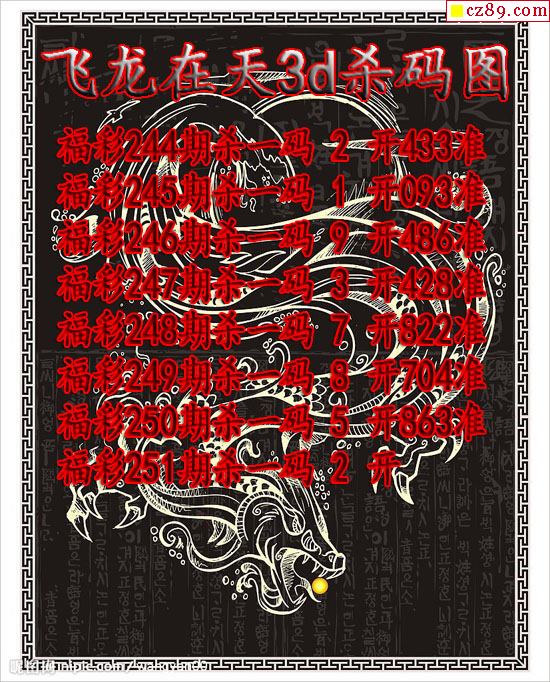 cz89.com
飞龙在天3d杀码图
福彩244期杀一码 2 开433准
福彩245期杀一码 1 开093准
福彩246期杀一码 9 开486准
福彩247期杀一码 3 开428准
福彩248期杀一码 7 开822准
福彩249期杀一码 8 开704准
福彩250期杀一码 5 开863准
福彩251期杀一码 2 开